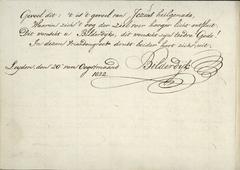 Geviel dit: 't is 't gevoel van Jezus heilgenade,
Waarin zich 't oog der ziel voor hooger licht ontsluit.
Dit wenscht u Bilderdijk, dit wenscht zijn tedre Gade!
In dezen
drukt beider hart zich uit.
Leyden, den 20n van Oogstmaand
1822.
Bilderdijk